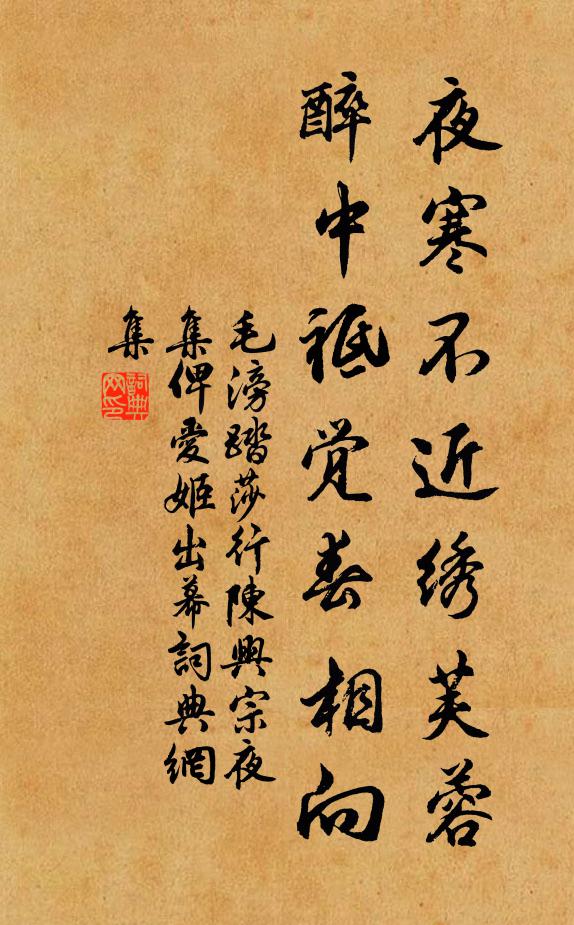 夜寒不近绣芙蓉
醉中祗觉春相向
毛滂踏莎行陳興宗夜
集俾愛姬出幕詞典網
集
詞典
网印